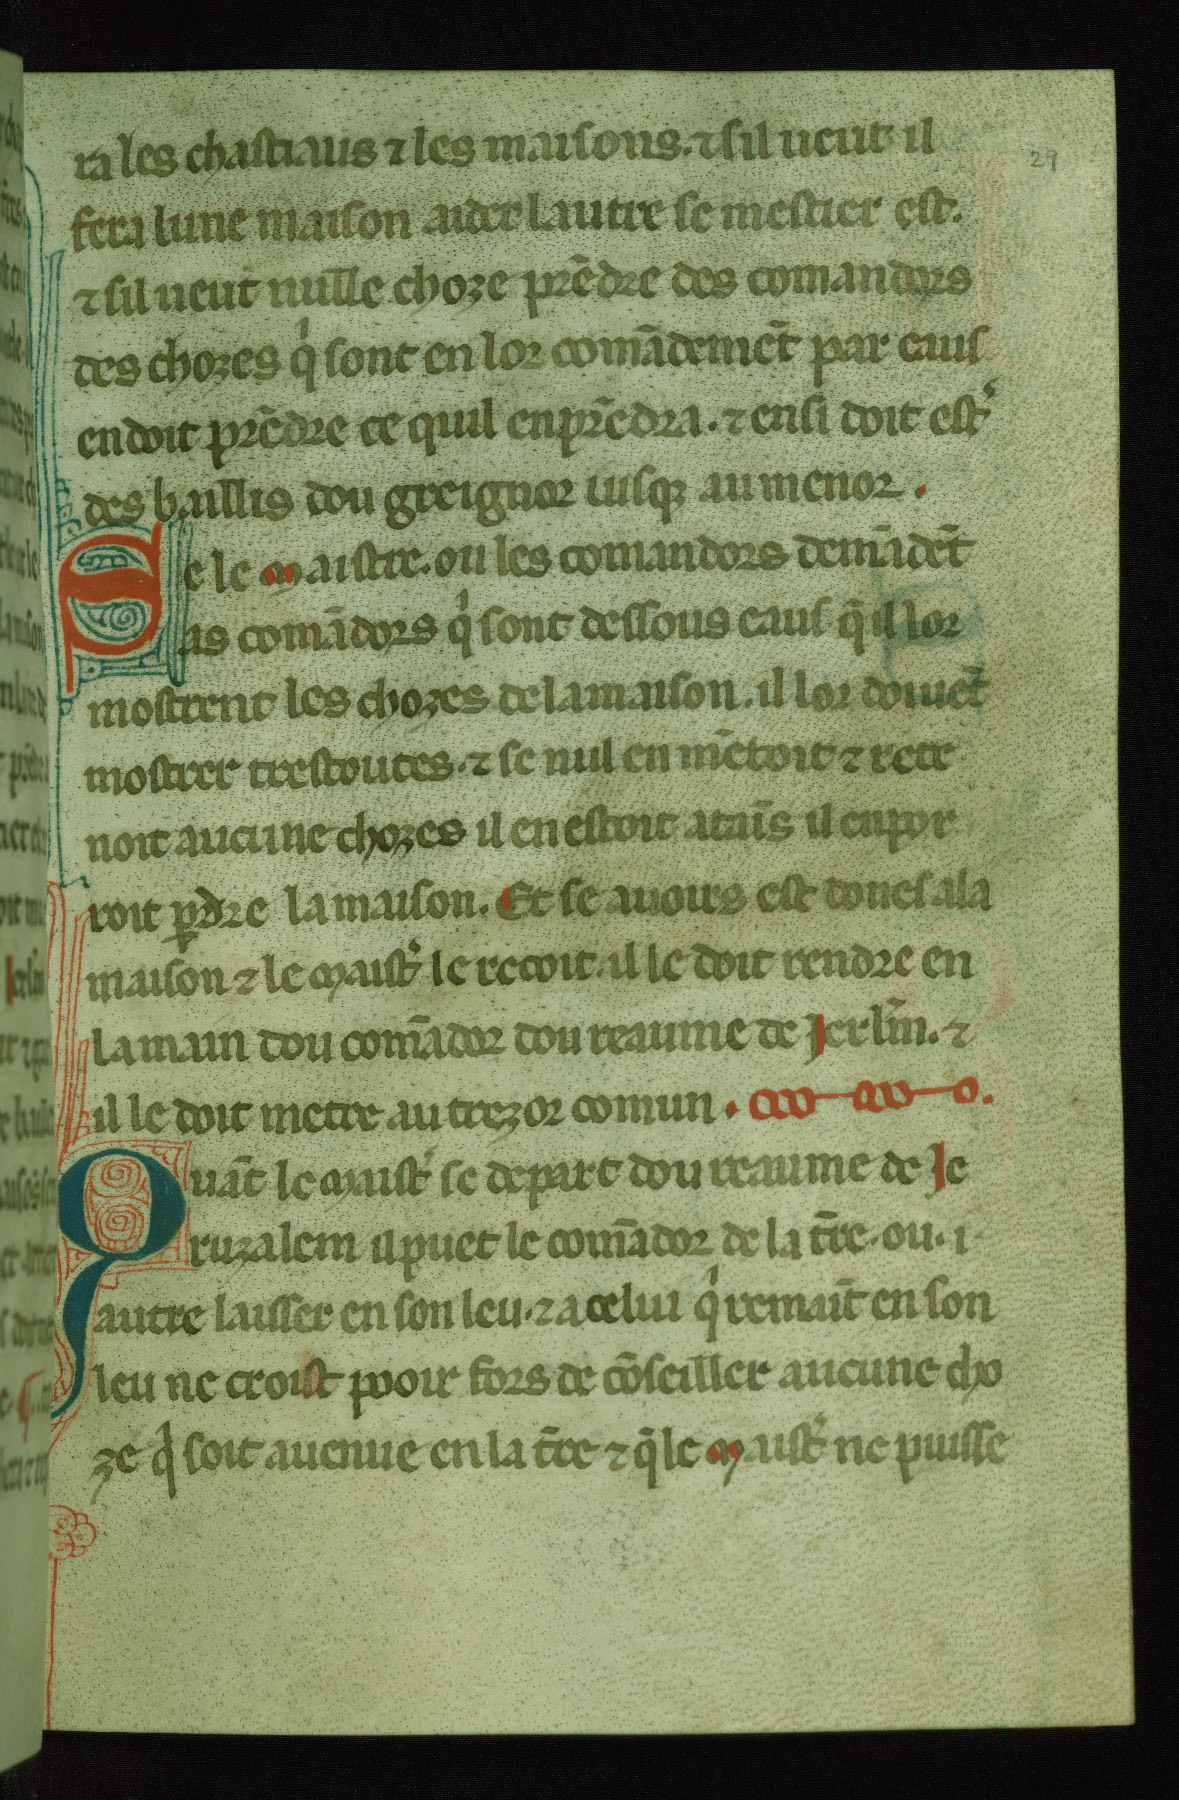 29
ra les chastiaus ⁊ les maisons. ⁊ sil ueut il
fera lune maison aider lautre se mestier est.
⁊ sil ueut nulle choze prēdre des comandors
des chozes qͥ sont en lor comādemēt par eaus
endoit prēdre ce quil enprēdra. ⁊ ensi doit est᷑
des baillis dou greignor iusqꝫ au menor.
Se le maistre. ou les comandors demādēt
as comādors qͥ sont dessous eaus q̄ il lor
mostrent les chozes de la maison. il lor doiuēt
mostrer trestoutes. ⁊ se nul en mētoit ⁊ rete
noit aucune chozes il en estoit ataīs il en por
roit ꝑdre la maison. Et se auoirs est dones a la
maison ⁊ le maist᷑ le recoit. il le doit rendre en
la main dou comādor dou reaume de Jerlm̄. ⁊
il le doit metre au trezor comun.
Quāt le maist᷑ se depart dou reaume de Je
ruzalem il puet le comādor de la t̄re. ou .i.
autre laisser en son leu. ⁊ a celui qͥ remaīt en son
leu ne croist pooir fors de cōseiller aucune cho
ze qͥ soit auenue en la t̄re ⁊ q̄ le maist᷑ ne puisse